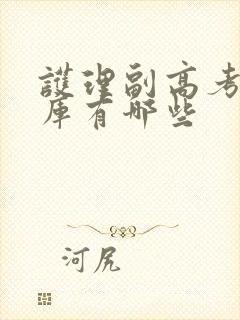 護理副高考
庫有哪些
河尻